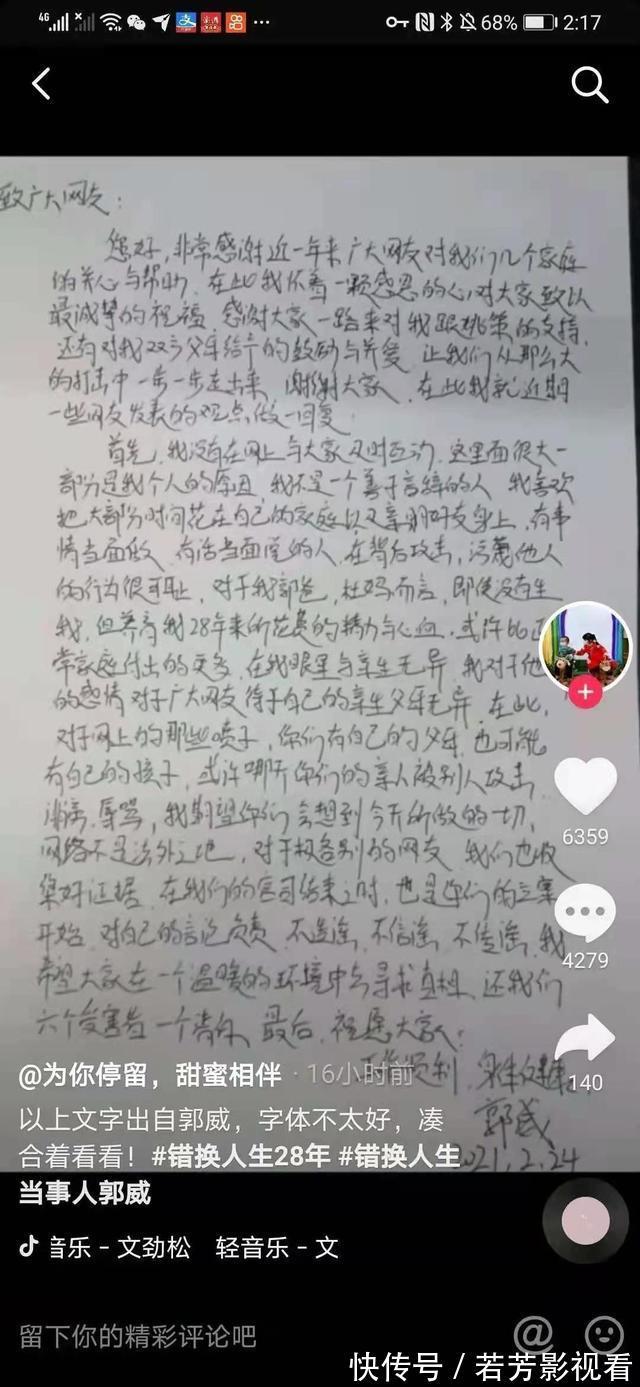 4G
68%
2:17
致广大网友：
您好，非常感谢近一年来广大网友对我们几个家庭
的关心与帮助，在此我怀着一颗感恩的心，对大家致以
最诚挚的祝福，感谢大家一路来对我跟姚策的支持，
还有对我双方父母给予的鼓励与关爱，让我们从那么大
的打击中一步一步走出来，谢谢大家，在此我就近期
一些网友发表的观点做一回复
首先，我没有在网上与大家及时互动，这里面很大一
部分是我个人的原因，我不是一个善于言辞的人，我喜欢
把大部分时间花在自己的家庭以及亲朋好友身上，有事
情当面做，有话当面说的人，在背后攻击，污蔑他人
的行为很可耻，对于我郭爸，杜妈而言，即使没有生
我，但养育我28年来所花费的精力与心血，或许比正
常家庭付出的更多，在我眼里与亲生无异，我对于他
的感情对于广大网友待于自己的亲生父母无异，在此，
对于网上的那些喷子，你们有自己的父母，也可能
有自己的孩子，或许哪天你们的亲人被别人攻击
辱骂，我期望你们会想到今天所做的一切，
网络不是法外之地，对于极各别的网友，我们也收
集好证据，在我们的官司结束之时，也是你们的立案
开始，对自己的言论负责，不造谣，不信谣，不传谣，我
希望大家在一个温暖的环境中去寻求真相，还我们
六个受害者一个清白，最后，祝愿大家：
工作顺利，身体健康
郭威
2021.2.24
6359
4279
140
@为你停留，甜蜜相伴 · 16小时前
以上文字出自郭威，字体不太好，凑
合着看看！#错换人生28年 #错换人生
当事人郭威
音乐 - 文劲松 轻音乐 - 文
留下你的精彩评论吧
快传号 / 若芳影视看